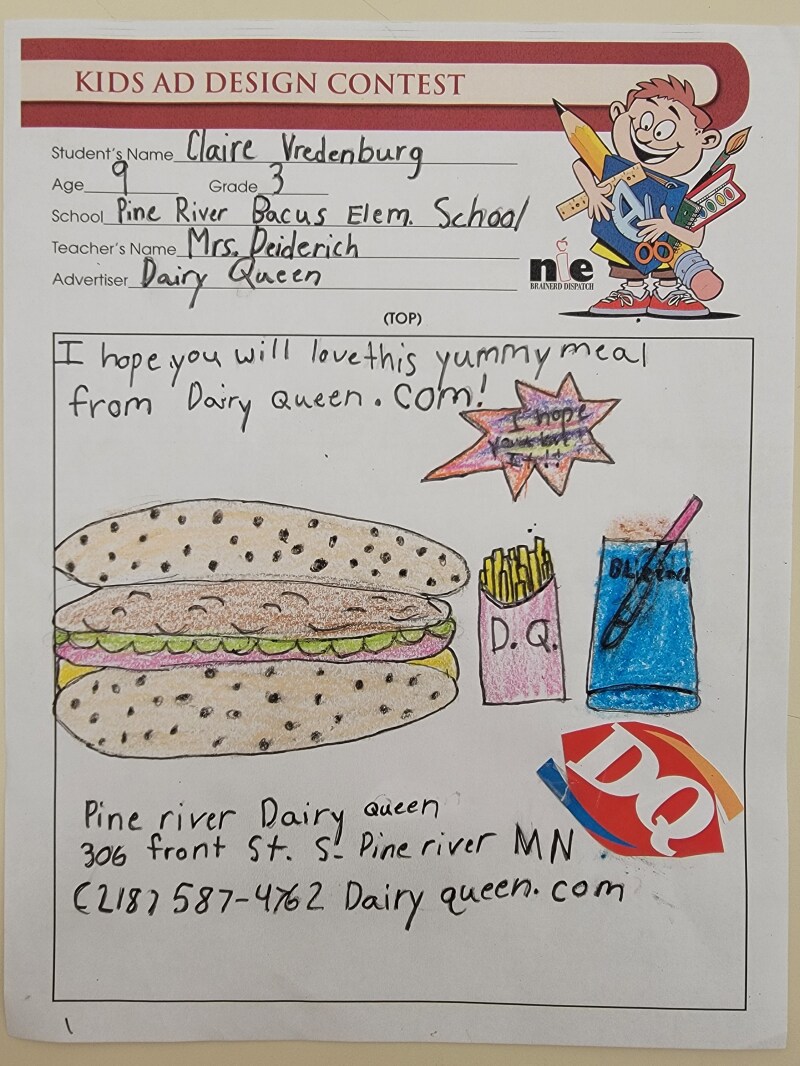 KIDS AD DESIGN CONTEST
Student's Name Claire Vredenburg
Age 9 Grade 3
School Pine River Bacus Elem. School
Teacher's Name Mrs. Deiderich
Advertiser Dairy Queen
nie
BRAINERD DISPATCH
(TOP)
I hope you will love this yummy meal
from Dairy Queen.com!
I hope
you love
It!!
D.Q.
Blizzard
DQ
Pine river Dairy queen
306 front St. S. Pine river MN
(218) 587-4762 Dairy queen.com